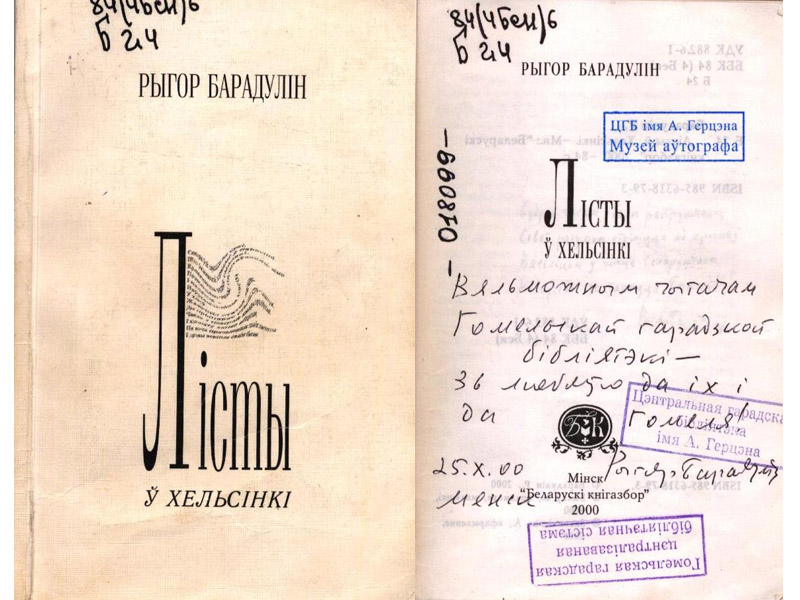 84(4Беи)6
Б 24
РЫГОР БАРАДУЛІН
Лісты
Ў ХЕЛЬСІНКІ
84(4Беи)6
Б 24
РЫГОР БАРАДУЛІН
ЦГБ імя А. Герцэна
Музей аўтографа
018099
ЛІСТЫ
Ў ХЕЛЬСІНКІ
Вяльможным чытачам
Гомельскай гарадзкой
бібліятэкі —
зь любоўю да іх і
да Гомеля!
Цэнтральная гарадская
бібліятэка
імя А. Герцэна
БК
25.X.00
Рыгор Барадулін
Менск
Мінск
"Беларускі кнігазбор"
2000
Гомельская гарадская
цэнтралізаваная
бібліятэчная сістэма